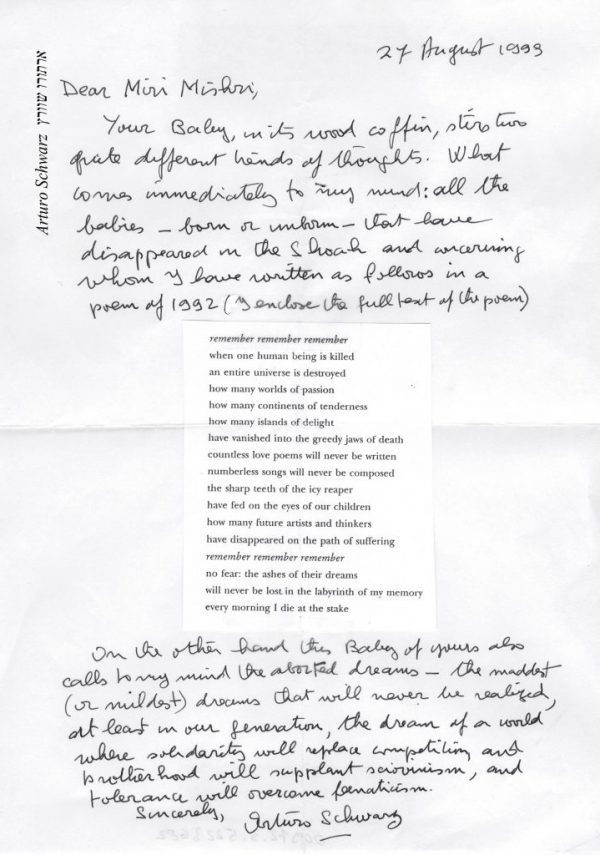 ארתורו שוורץ Arturo Schwarz
27 August 1993
Dear Miri Mishri,
Your Baby, in its wood coffin, stirs two
quite different kinds of thoughts. What
comes immediately to my mind: all the
babies – born or unborn – that have
disappeared in the Shoah and concerning
whom I have written as follows in a
poem of 1992 (I enclose the full text of the poem)
remember remember remember
when one human being is killed
an entire universe is destroyed
how many worlds of passion
how many continents of tenderness
how many islands of delight
have vanished into the greedy jaws of death
countless love poems will never be written
numberless songs will never be composed
the sharp teeth of the icy reaper
have fed on the eyes of our children
how many future artists and thinkers
have disappeared on the path of suffering
remember remember remember
no fear: the ashes of their dreams
will never be lost in the labyrinth of my memory
every morning I die at the stake
On the other hand this Baby of yours also
calls to my mind the aborted dreams – the maddest
(or mildest) dreams that will never be realized,
at least in our generation, the dream of a world
where solidarity will replace competition and
brotherhood will supplant sciovinism, and
tolerance will overcome fanaticism.
Sincerely, Arturo Schwarz